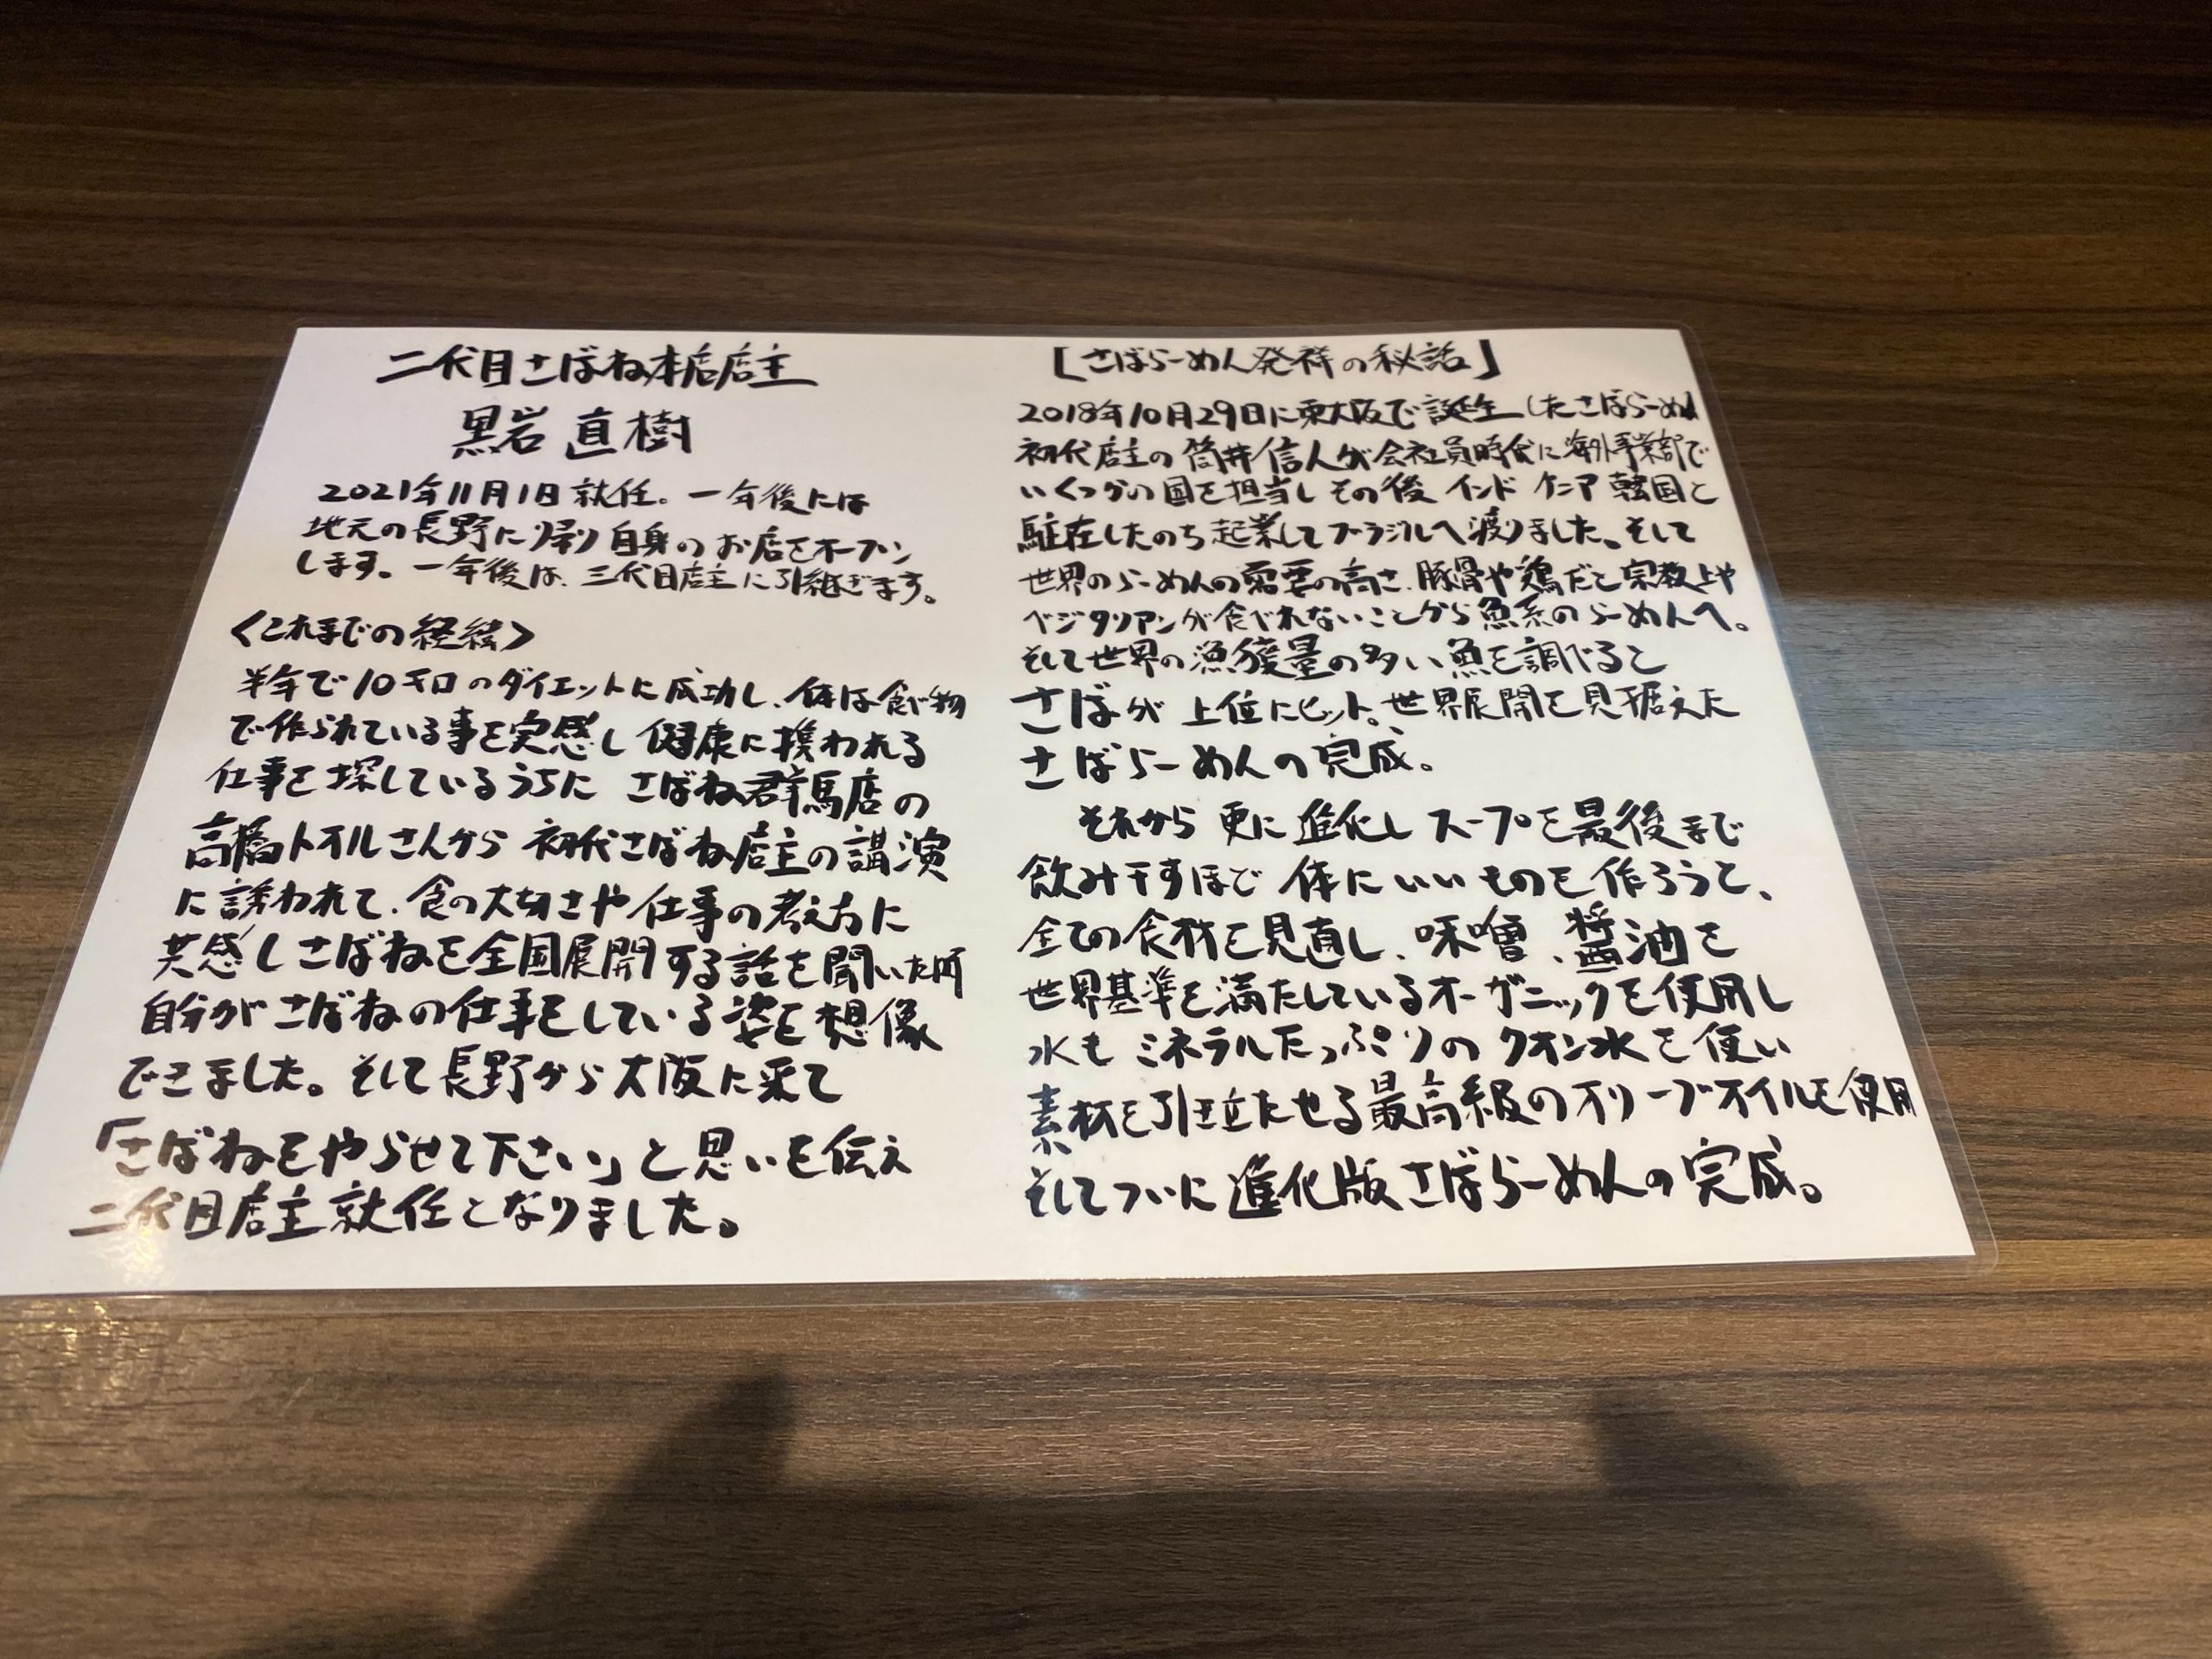 二代目さばね本店店主
黒岩 直樹
2021年11月1日就任。一年後には
地元の長野に帰り自身のお店をオープン
します。一年後は、三代目店主に引継ぎます。
〈これまでの経緯〉
半年で10キロのダイエットに成功し、体は食べ物
で作られている事を実感し健康に携われる
仕事を探しているうちに さばね群馬店の
高橋トオルさんから 初代さばね店主の講演
に誘われて、食の大切さや仕事の考え方に
共感しさばねを全国展開する話を聞いた所
自分がさばねの仕事をしている姿を想像
できました。そして長野から大阪に来て
「さばねをやらせて下さい」と思いを伝え
二代目店主就任となりました。
[さばらーめん発祥の秘話]
2018年10月29日に東大阪で誕生したさばらーめん
初代店主の筒井信人が会社員時代に海外事業部で
いくつかの国を担当しその後 インド ケニア 韓国と
駐在したのち起業してブラジルへ渡りました。そして
世界のらーめんの需要の高さ、豚骨や鶏だと宗教上や
ベジタリアンが食べれないことから魚系のらーめんへ。
そして世界の漁獲量の多い魚を調べると
さばが 上位にヒット。世界展開を見据えた
さばらーめんの完成。
それから 更に進化し スープを最後まで
飲み干すほで 体にいいものを作ろうと、
全ての食材を見直し、味噌、醤油を
世界基準を満たしているオーガニックを使用し
水も ミネラルたっぷりの クオン水を使い
素材を引き立たせる最高級のオリーブオイルを使用
そしてついに進化版さばらーめんの完成。